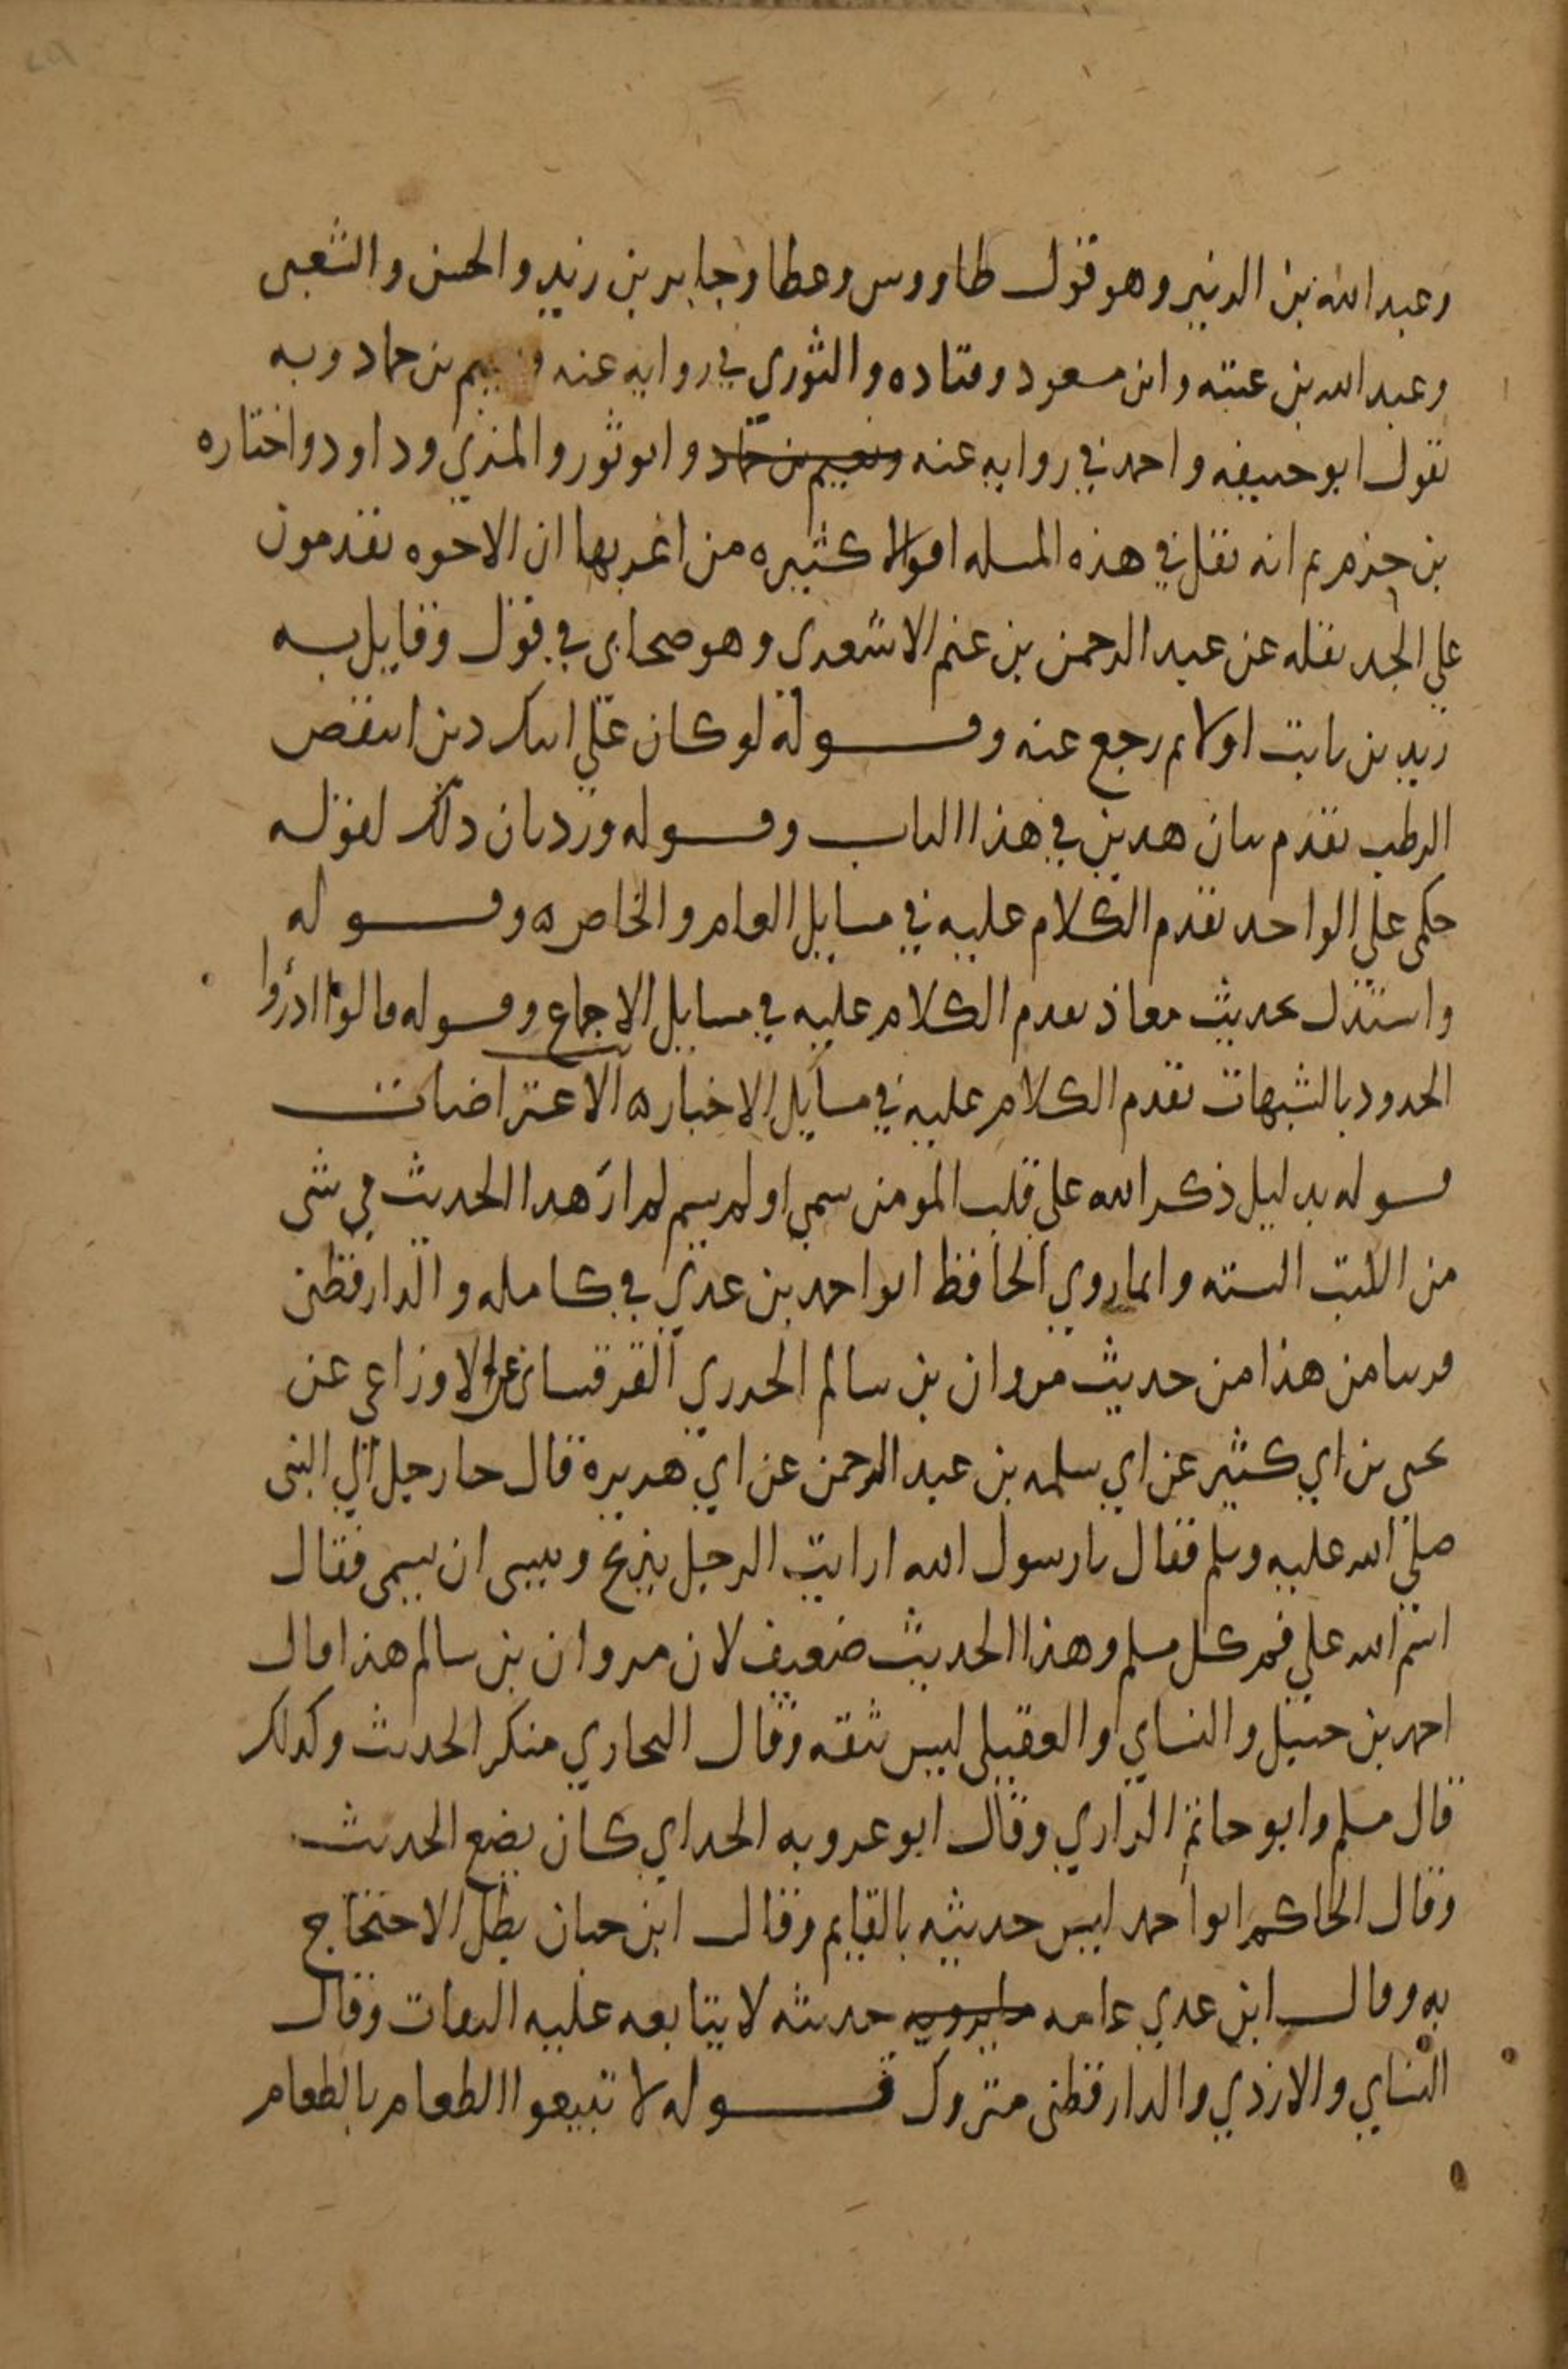 وعبد الله بن الزبير وهو قول طاووس وعطا وجابر بن زيد والحسن والشعبي
وعبد الله بن عتبه وابن مسعود وقتاده والثوري في روايه عنه ونعيم بن حماد وبه
نقول ابو حنيفه واحمد في روايه عنه ونعيم بن حماد وابو ثور والمزني وداود واختاره
بن حزم ثم انه نقل في هذه المسله اقوالا كثيره من اغربها ان الاخوه يقدمون
علي الجد نقله عن عبد الرحمن بن غنم الاشعري وهو صحابي في قول وقايل به
زيد بن ثابت اولا ثم رجع عنه وقوله لو كان علي ابيك دين اينقص
الرطب تقدم بيان هدين في هذا الباب وقوله ورد بان دلك لقوله
حكمي علي الواحد تقدم الكلام عليه في مسايل العام والخاص ه وقوله
واستدل بحديث معاذ تقدم الكلام عليه في مسايل الاجماع وقوله قالوا ادرؤا
الحدود بالشبهات تقدم الكلام عليه في مسايل الاخبار ه الاعتراضات
قوله بدليل ذكر الله علي قلب المومن سمي او لم يسم لم ار هدا الحديث في شي
من الكتب السته وانما روي الحافظ ابو احمد بن عدي في كامله والدارقطني
قريبا من هذا من حديث مروان بن سالم الجزري القرقساني عن الاوزاعي عن
يحيي بن ابي كثير عن ابي سلمه بن عبد الرحمن عن ابي هريرة قال جا رجل الي النبي
صلي الله عليه وسلم فقال يا رسول الله ارايت الرجل يذبح وينسي ان يسمي فقال
اسم الله علي فم كل مسلم وهذا الحديث ضعيف لان مروان بن سالم هذا قال
احمد بن حنبل والنساي والعقيلي ليس بثقه وقال البخاري منكر الحديث وكدلك
قال مسلم وابو حاتم الرازي وقال ابو عروبه الحراني كان يضع الحديث
وقال الحاكم ابو احمد ليس حديثه بالقايم وقال ابن حبان بطل الاحتجاج
به وقال ابن عدي عامه ما يرويه حديثه لا يتابعه عليه الثقات وقال
النساي والازدي والدارقطني متروك قوله لا تبيعوا الطعام بالطعام